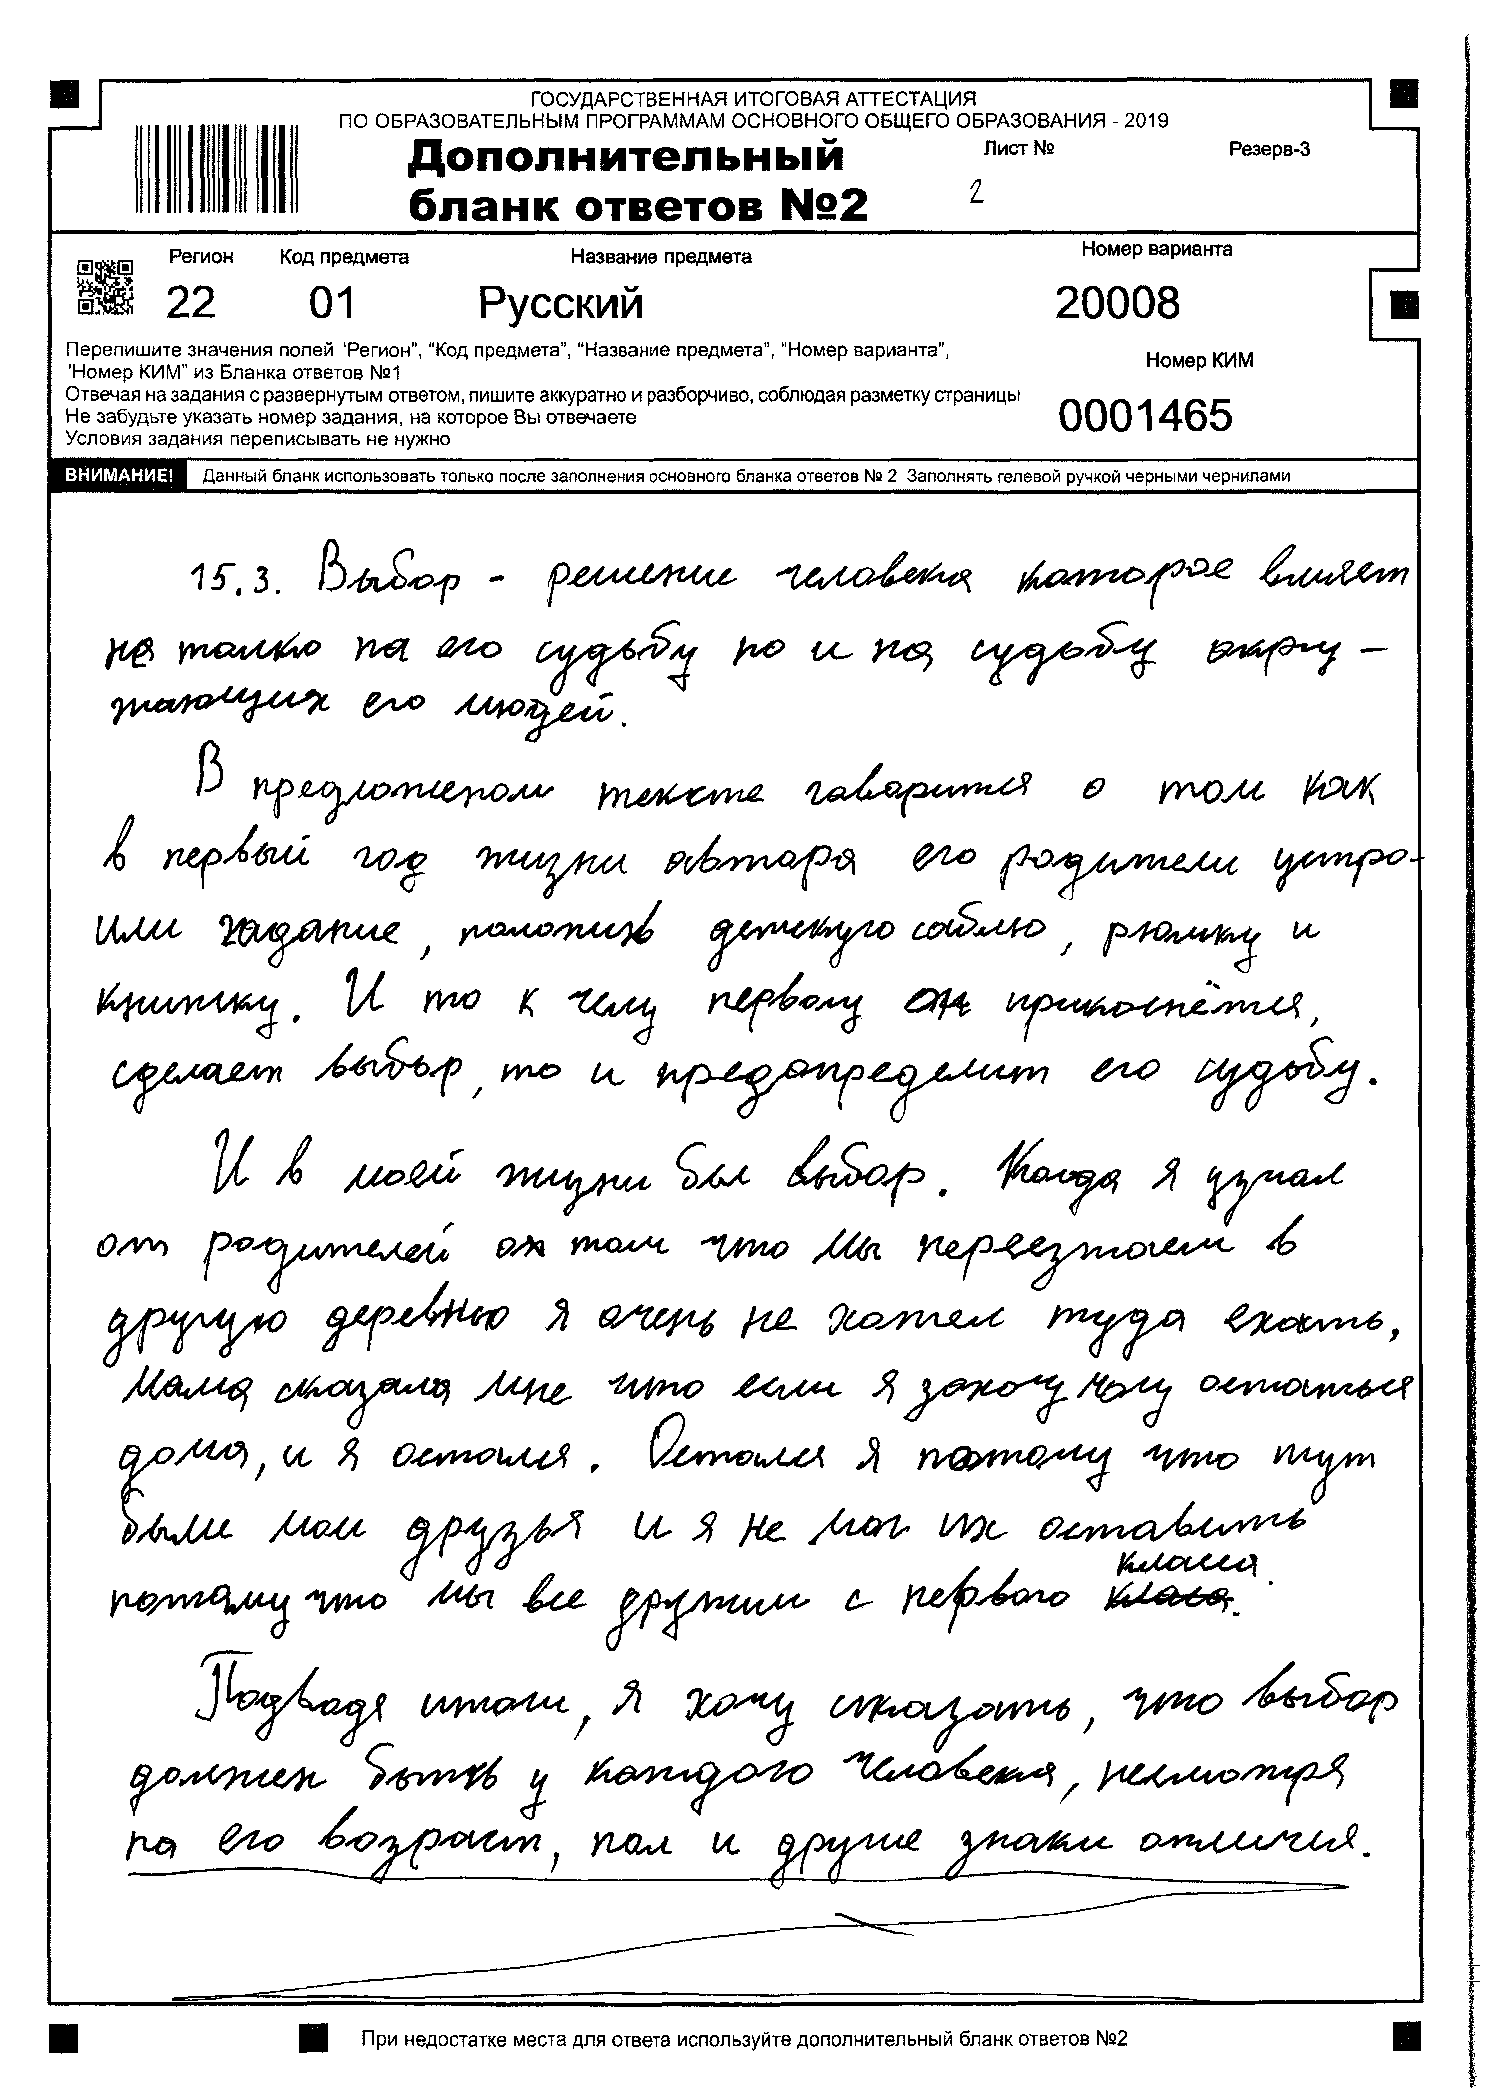 ГОСУДАРСТВЕННАЯ ИТОГОВАЯ АТТЕСТАЦИЯ
ПО ОБРАЗОВАТЕЛЬНЫМ ПРОГРАММАМ ОСНОВНОГО ОБЩЕГО ОБРАЗОВАНИЯ - 2019
Дополнительный Лист № Резерв-3
бланк ответов №2 2
Регион Код предмета Название предмета Номер варианта
22 01 Русский 20008
Перепишите значения полей "Регион", "Код предмета", "Название предмета", "Номер варианта",
"Номер КИМ" из Бланка ответов №1 Номер КИМ
Отвечая на задания с развернутым ответом, пишите аккуратно и разборчиво, соблюдая разметку страницы
Не забудьте указать номер задания, на которое Вы отвечаете 0001465
Условия задания переписывать не нужно
ВНИМАНИЕ! Данный бланк использовать только после заполнения основного бланка ответов № 2 Заполнять гелевой ручкой черными чернилами
15.3. Выбор - решение человека которое влияет
не толко на его судьбу но и на судьбу окру-
жающих его людей.
В предложеном тексте говорится о том как
в первый год жизни автора его родители устро-
или задание, положив детскую саблю, рюмку и
книжку. И то к чему первому он прикоснётся,
сделает выбор, то и предопределит его судьбу.
И в моей жизни был выбор. Когда я узнал
от родителей о том что мы переезжаем в
другую деревню я очень не хотел туда ехать,
мама сказала мне что если я захочу могу остаться
дома, и я остался. Остался я потому что тут
были мои друзья и я не мог их оставить
потому что мы все дружим с первого класа. класса.
Подводя итоги, я хочу сказать, что выбор
должен быть у каждого человека, несмотря
на его возраст, пол и другие знаки отличия.
При недостатке места для ответа используйте дополнительный бланк ответов №2